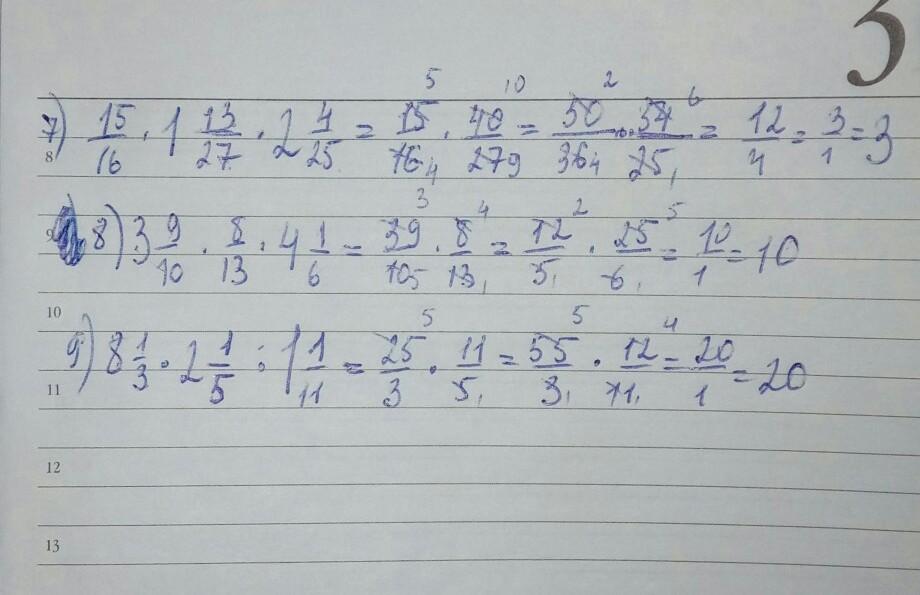 3
7) 15/16 · 1 13/27 · 2 4/25 = 15/16 · 40/27 = 50/36 · 54/25 = 12/4 = 3/1 = 3
8
8) 3 9/10 · 8/13 · 4 1/6 = 39/10 · 8/13 = 12/5 · 25/6 = 10/1 = 10
10
9) 8 1/3 · 2 1/5 : 1 1/11 = 25/3 · 11/5 = 55/3 · 12/11 = 20/1 = 20
11
12
13